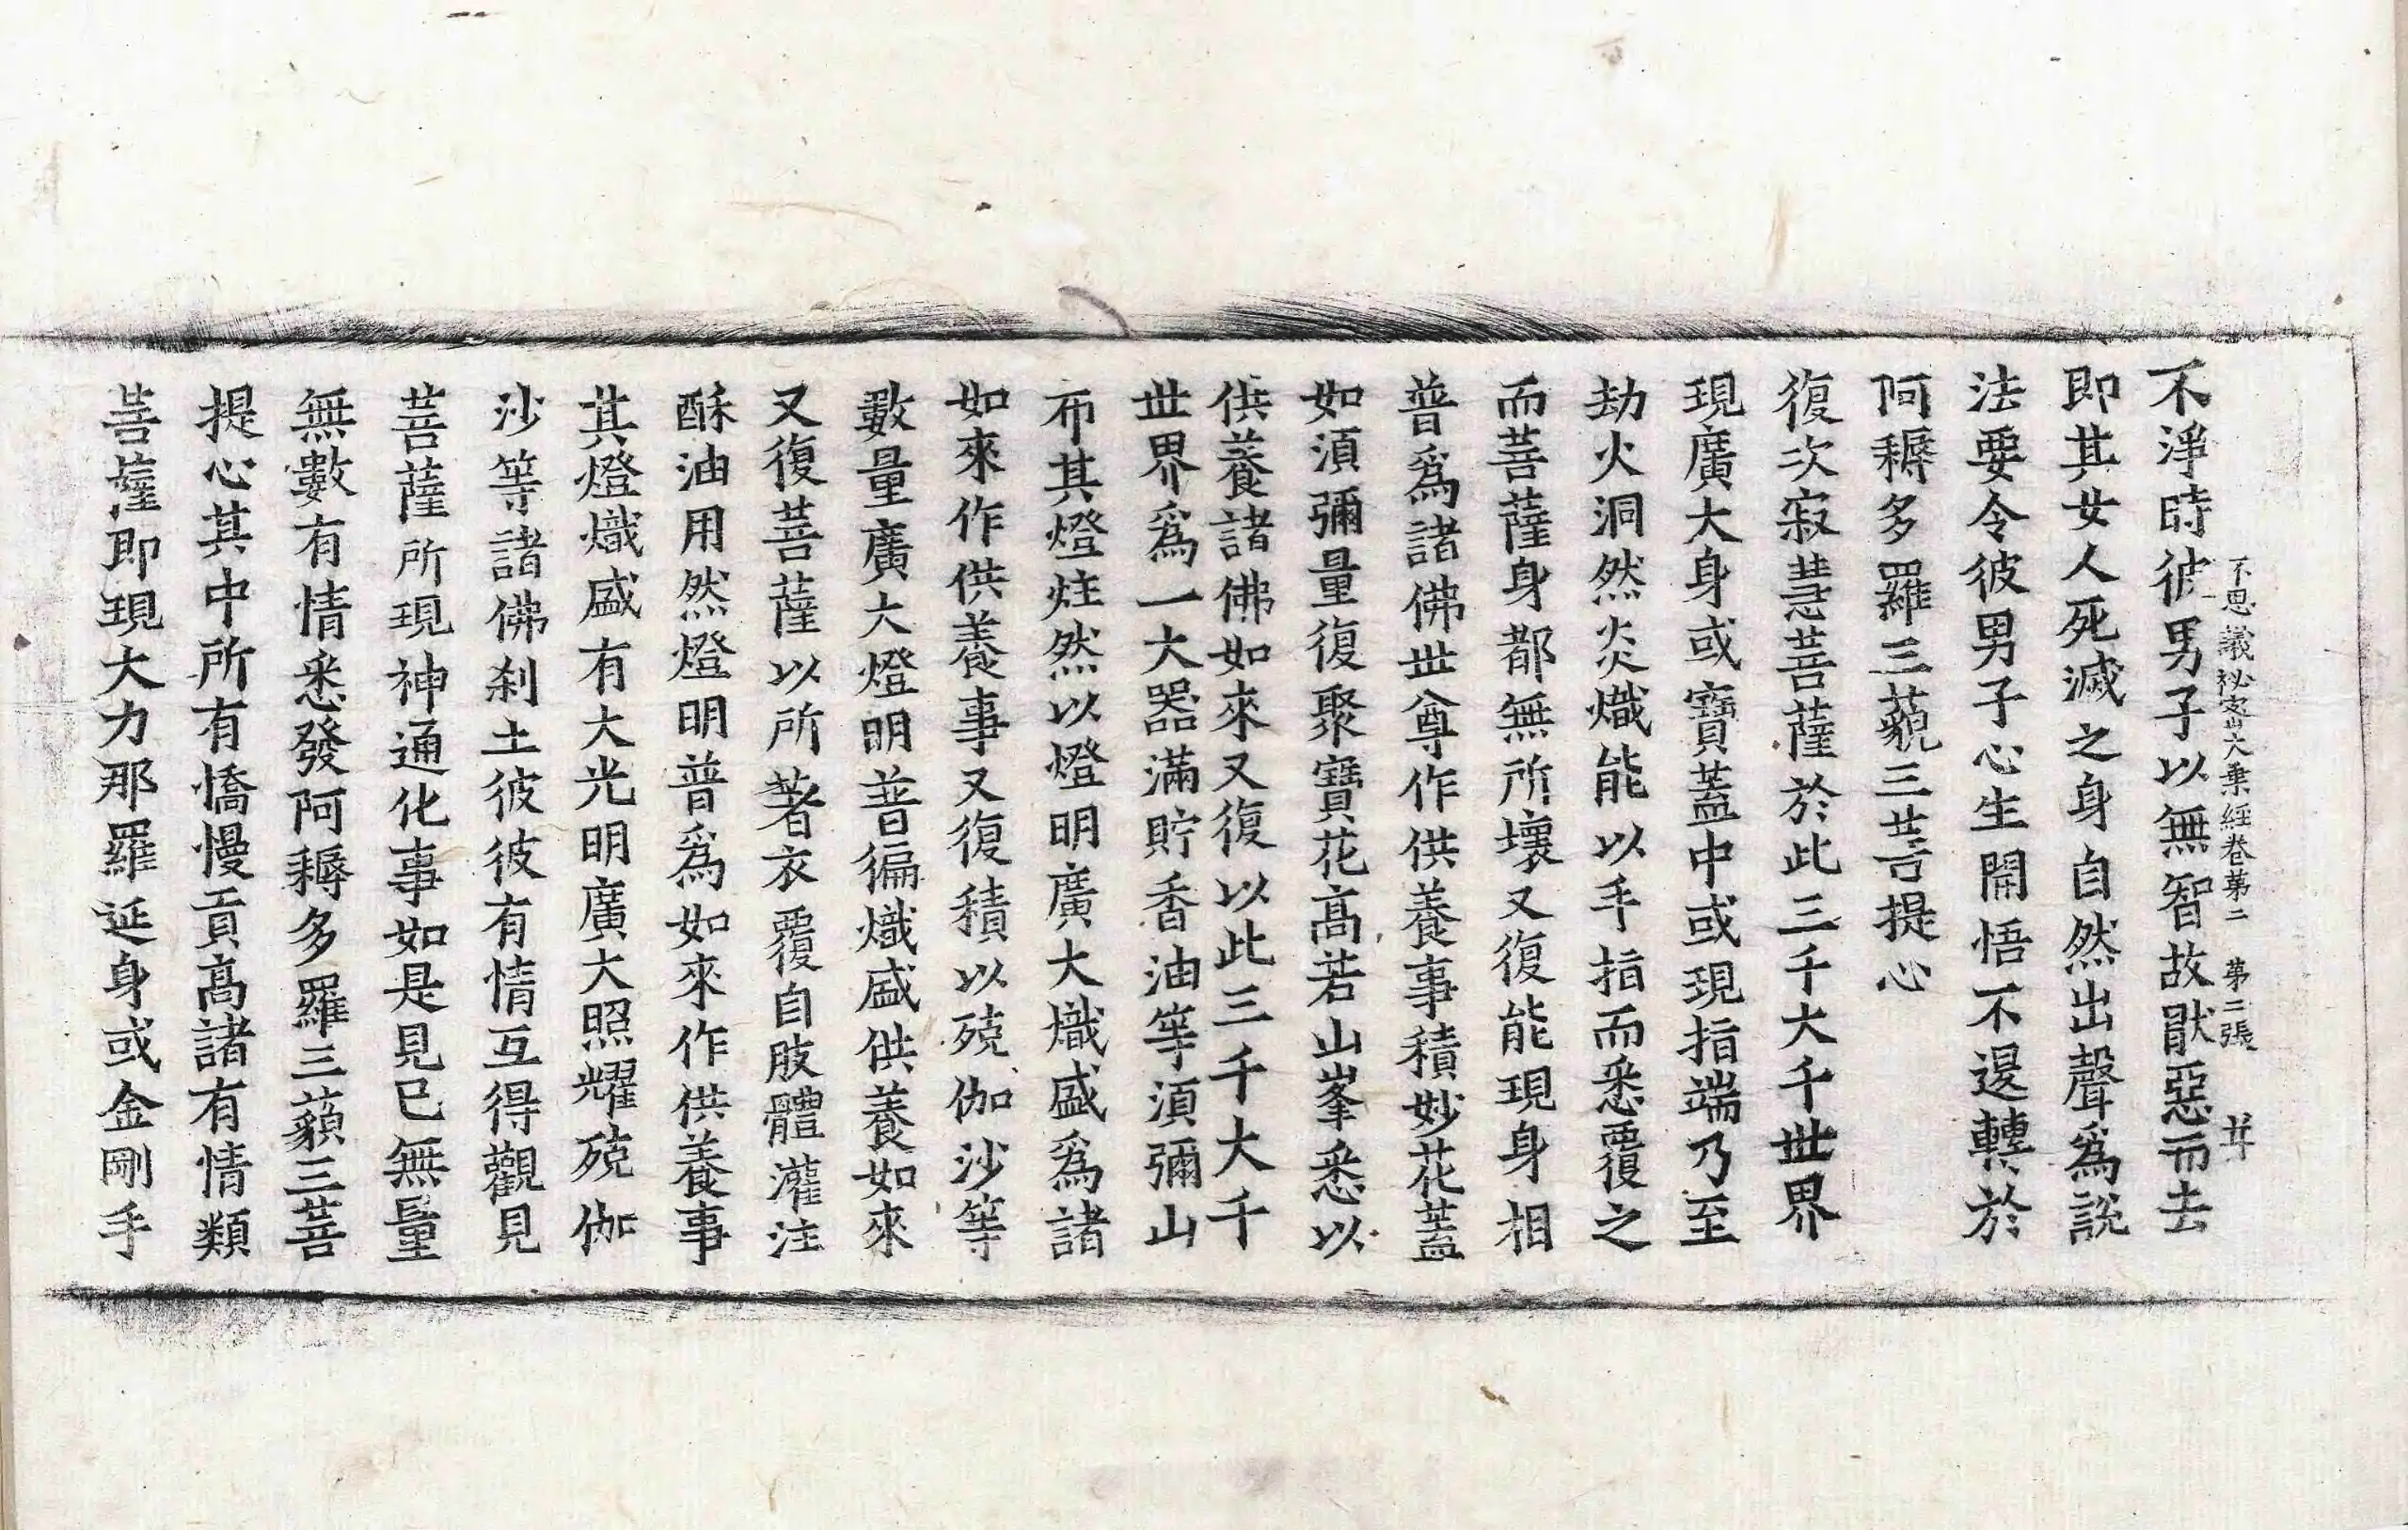 不思議祕密大乘經卷第二　第二張　幷
不淨時彼男子以無智故猒惡而去
即其女人死滅之身自然出聲爲說
法要令彼男子心生開悟不退轉於
阿耨多羅三藐三菩提心
復次寂慧菩薩於此三千大千世界
現廣大身或寶蓋中或現指端乃至
劫火洞然炎熾能以手指而悉覆之
而菩薩身都無所壞又復能現身相
普爲諸佛世尊作供養事積妙花蓋
如須彌量復聚寶花高若山峯悉以
供養諸佛如來又復以此三千大千
世界爲一大器滿貯香油等須彌山
布其燈炷然以燈明廣大熾盛爲諸
如來作供養事又復積以殑伽沙等
數量廣大燈明普徧熾盛供養如來
又復菩薩以所著衣覆自肢體灌注
酥油用然燈明普爲如來作供養事
其燈熾盛有大光明廣大照耀殑伽
沙等諸佛刹土彼彼有情互得觀見
菩薩所現神通化事如是見已無量
無數有情悉發阿耨多羅三藐三菩
提心其中所有憍慢貢高諸有情類
菩薩即現大力那羅延身或金剛手